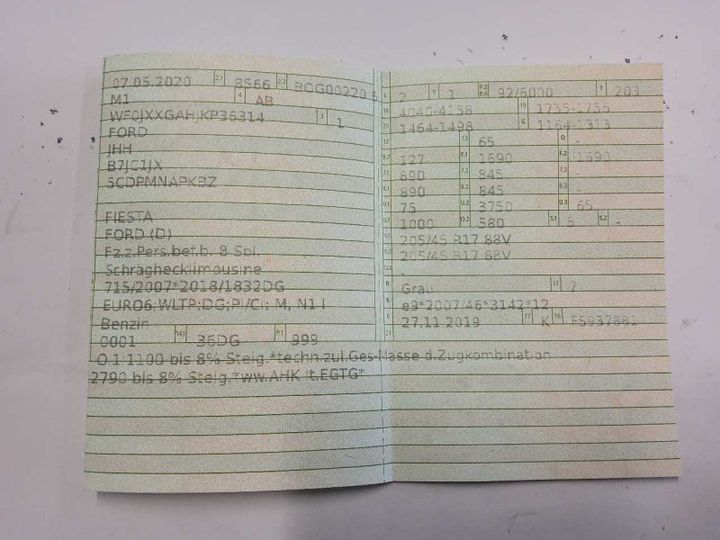 07.05.2020 2.1 8566 2.2 BCG00220 5
M1 4 AB
WF0JXXGAHJKP36314 3 1
FORD
JHH
B7JC1JX
5CDPMNAPKBZ
FIESTA
FORD (D)
Fz.z.Pers.bef.b. 8 Spl.
Schräghecklimousine
715/2007*2018/1832DG
EURO6;WLTP;DG;PI/CI; M, N1 I
Benzin
0001 14.1 36DG P.1 999
L 2 9 1 P.2 P.4 92/6000 T 203
18 4040-4158 19 1735-1735
20 1464-1498 G 1164-1313
12 - 13 65 Q -
V.7 127 F.1 1690 F.2 1690
7.1 890 7.2 845 7.3 -
8.1 890 8.2 845 8.3 -
U.1 75 U.2 3750 U.3 65
O.1 1000 O.2 580 S.1 5 S.2 -
205/45 R17 88V
205/45 R17 88V
-
R Grau 11 7
K e9*2007/46*3142*12
6 27.11.2019 17 K 16
21
O.1:1100 bis 8% Steig.*techn.zul.Ges-Masse d.Zugkombination
2790 bis 8% Steig.*ww.AHK lt.EGTG*